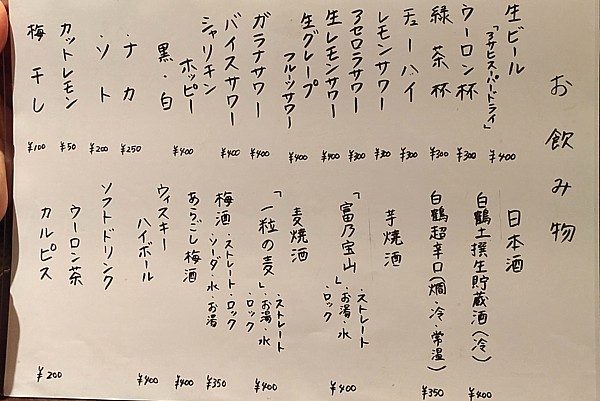 お飲み物
生ビール
「アサヒスーパードライ」 ¥400
ウーロン杯 ¥300
緑茶杯 ¥300
チューハイ ¥300
レモンサワー ¥300
アセロラサワー ¥300
生レモンサワー ¥400
生グレープ
フルーツサワー ¥400
ガラナサワー ¥400
バイスサワー ¥400
シャリキン
ホッピー
黒・白 ¥400
・ナカ ¥250
・ソト ¥200
カットレモン ¥50
梅干し ¥100
日本酒
白鶴土撰生貯蔵酒(冷) ¥400
白鶴超辛口(燗・冷・常温) ¥350
芋焼酎
「富乃宝山」・ストレート
・お湯・水
・ロック ¥400
麦焼酎
「一粒の麦」・ストレート
・お湯・水
・ロック ¥400
梅酒・ストレート・ロック
・ソーダ・水・お湯 ¥350
あらごし梅酒 ¥400
ウィスキー
ハイボール ¥400
ソフトドリンク
ウーロン茶
カルピス ¥200